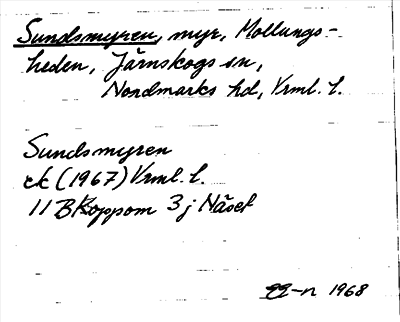 Sundsmyren, myr, Mollungs-
heden, Järnskogs sn,
Nordmarks hd, Vrml. l.
Sundsmyren
ek (1967) Vrml. l.
11 B Koppom 3 j Näset
1968